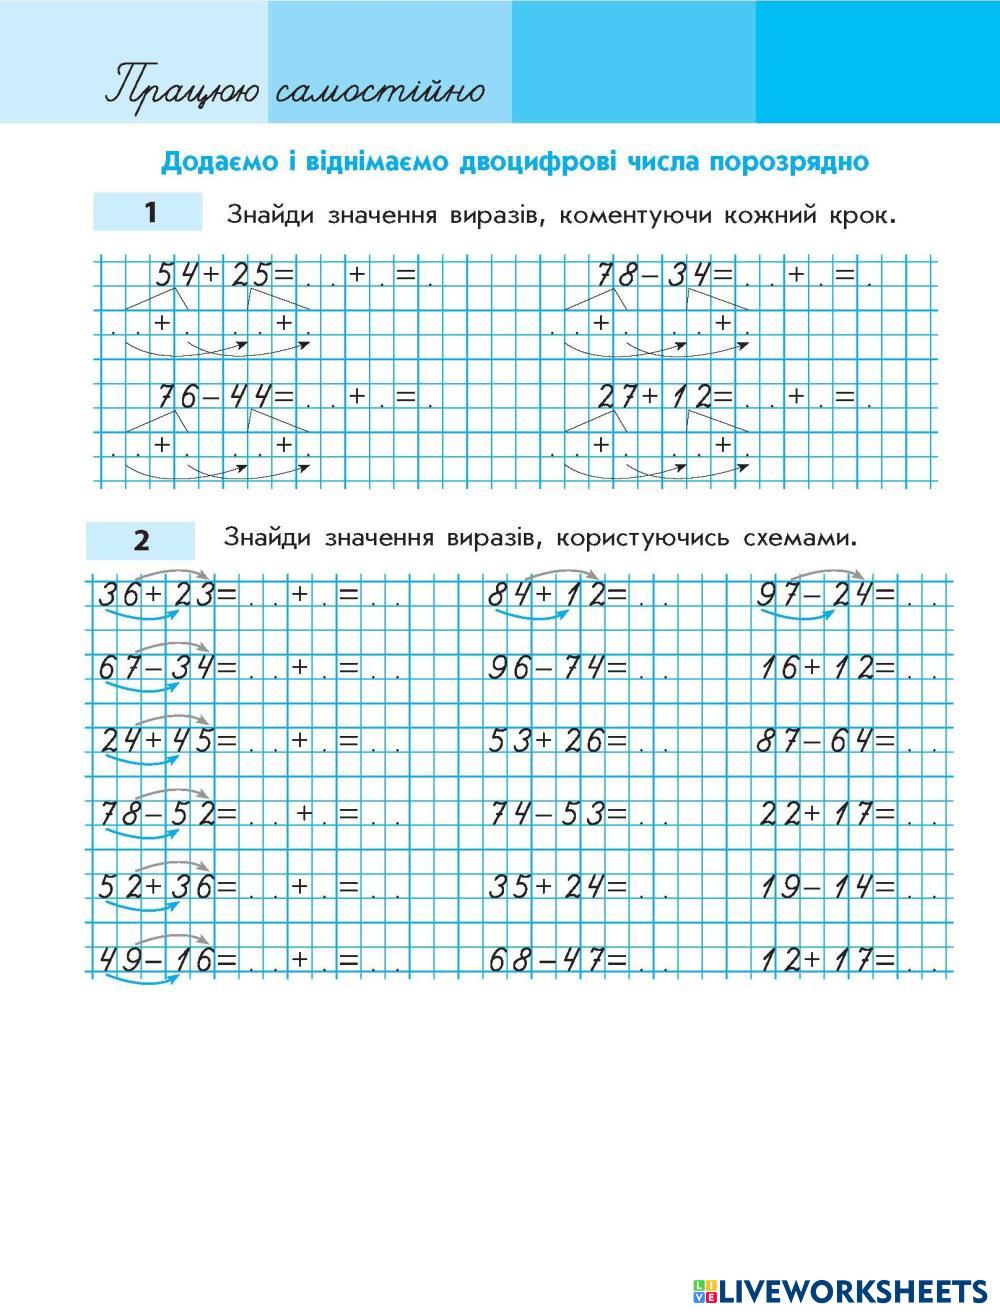 Працюю самостійно
Додаємо і віднімаємо двоцифрові числа порозрядно
1 Знайди значення виразів, коментуючи кожний крок.
54+25= . . + . = . 78-34= . . + . = .
. . + . . . + . . . + . . . + .
76-44= . . + . = . 27+12= . . + . = .
. . + . . . + . . . + . . . + .
2 Знайди значення виразів, користуючись схемами.
36+23= . . + . = . . 84+12= . . 97-24= . .
67-34= . . + . = . . 96-74= . . 16+12= . .
24+45= . . + . = . . 53+26= . . 87-64= . .
78-52= . . + . = . . 74-53= . . 22+17= . .
52+36= . . + . = . . 35+24= . . 19-14= . .
49-16= . . + . = . . 68-47= . . 12+17= . .
LIVE LIVEWORKSHEETS